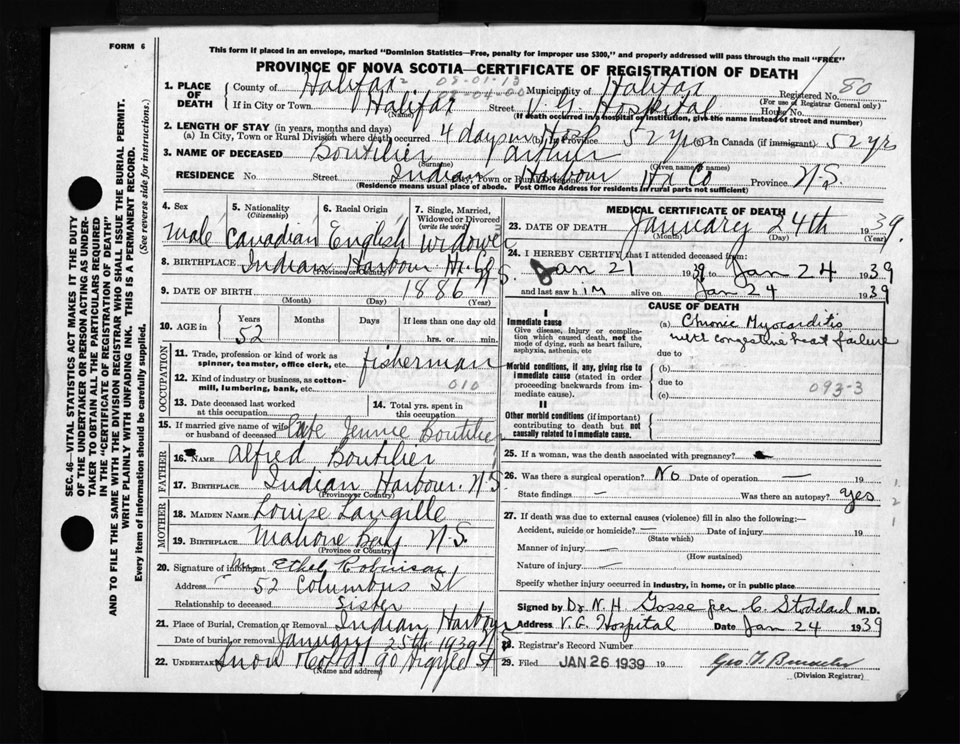 FORM 6
This form if placed in an envelope, marked "Dominion Statistics—Free, penalty for improper use $300," and properly addressed will pass through the mail "FREE"
PROVINCE OF NOVA SCOTIA—CERTIFICATE OF REGISTRATION OF DEATH
1. PLACE OF DEATH County of Halifax Municipality of Halifax Registered No. 80
(For use of Registrar General only)
If in City or Town Halifax Street V. G. Hospital House No.
(Name) (If death occurred in a hospital or institution, give the name instead of street and number)
2. LENGTH OF STAY (in years, months and days)
(a) In City, Town or Rural Division where death occurred 4 days in Hosp (b) In Province 52 yrs (c) In Canada (if immigrant) 52 yrs
3. NAME OF DECEASED Boutilier Arthur
(Surname) (Given name or names)
RESIDENCE No. Street Indian Harbour Hx Co Province N.S.
City, Town or Rural Division
(Residence means usual place of abode. Post Office Address for residents in rural parts not sufficient)
4. Sex 5. Nationality (Citizenship) 6. Racial Origin 7. Single, Married, Widowed or Divorced (write the word)
Male Canadian English Widower
8. BIRTHPLACE Indian Harbour Hx. Co. N.S.
(Province or Country)
9. DATE OF BIRTH 1886
(Month) (Day) (Year)
10. AGE in Years Months Days If less than one day old
52 hrs. or min.
OCCUPATION
11. Trade, profession or kind of work as spinner, teamster, office clerk, etc. fisherman
12. Kind of industry or business, as cotton-mill, lumbering, bank, etc. 010
13. Date deceased last worked at this occupation 14. Total yrs. spent in this occupation
15. If married give name of wife or husband of deceased Jennie Boutilier
FATHER
16. NAME Alfred Boutilier
17. BIRTHPLACE Indian Harbour. N.S.
(Province or Country)
MOTHER
18. MAIDEN NAME Louise Langille
19. BIRTHPLACE Mahone Bay N.S.
(Province or Country)
20. Signature of informant Mrs Ethel Robinson
Address 52 Columbus St
Relationship to deceased Sister
21. Place of Burial, Cremation or Removal Indian Harbour
Date of burial or removal January 25th 1939
22. UNDERTAKER Snow & Co Ltd 90 Argyle St
(Name and address)
MEDICAL CERTIFICATE OF DEATH
23. DATE OF DEATH January 24th 1939.
(Month) (Day) (Year)
24. I HEREBY CERTIFY that I attended deceased from:
Jan 21 1939 to Jan 24 1939
and last saw him alive on Jan 24 1939
CAUSE OF DEATH
I
Immediate cause
Give disease, injury or complication which caused death, not the mode of dying, such as heart failure, asphyxia, asthenia, etc
(a) Chronic Myocarditis with congestive heart failure
due to
Morbid conditions, if any, giving rise to immediate cause (stated in order proceeding backwards from immediate cause).
(b)
due to 093-3
(c)
II
Other morbid conditions (if important) contributing to death but not causally related to immediate cause.
25. If a woman, was the death associated with pregnancy?
26. Was there a surgical operation? No Date of operation — 19
State findings — Was there an autopsy? Yes
27. If death was due to external causes (violence) fill in also the following:—
Accident, suicide or homicide? — Date of injury — 19
(State which)
Manner of injury —
(How sustained)
Nature of injury —
Specify whether injury occurred in industry, in home, or in public place
Signed by Dr. N. H. Gosse per C. Stoddard M.D.
Address V.G. Hospital Date Jan 24 1939
28. Registrar's Record Number
29. Filed JAN 26 1939 19
(Division Registrar)
SEC. 46—VITAL STATISTICS ACT MAKES IT THE DUTY OF THE UNDERTAKER OR PERSON ACTING AS UNDERTAKER TO OBTAIN ALL THE PARTICULARS REQUIRED IN THE "CERTIFICATE OF REGISTRATION OF DEATH"
AND TO FILE THE SAME WITH THE DIVISION REGISTRAR WHO SHALL ISSUE THE BURIAL PERMIT.
WRITE PLAINLY WITH UNFADING INK. THIS IS A PERMANENT RECORD.
Every item of information should be carefully supplied. (See reverse side for instructions.)